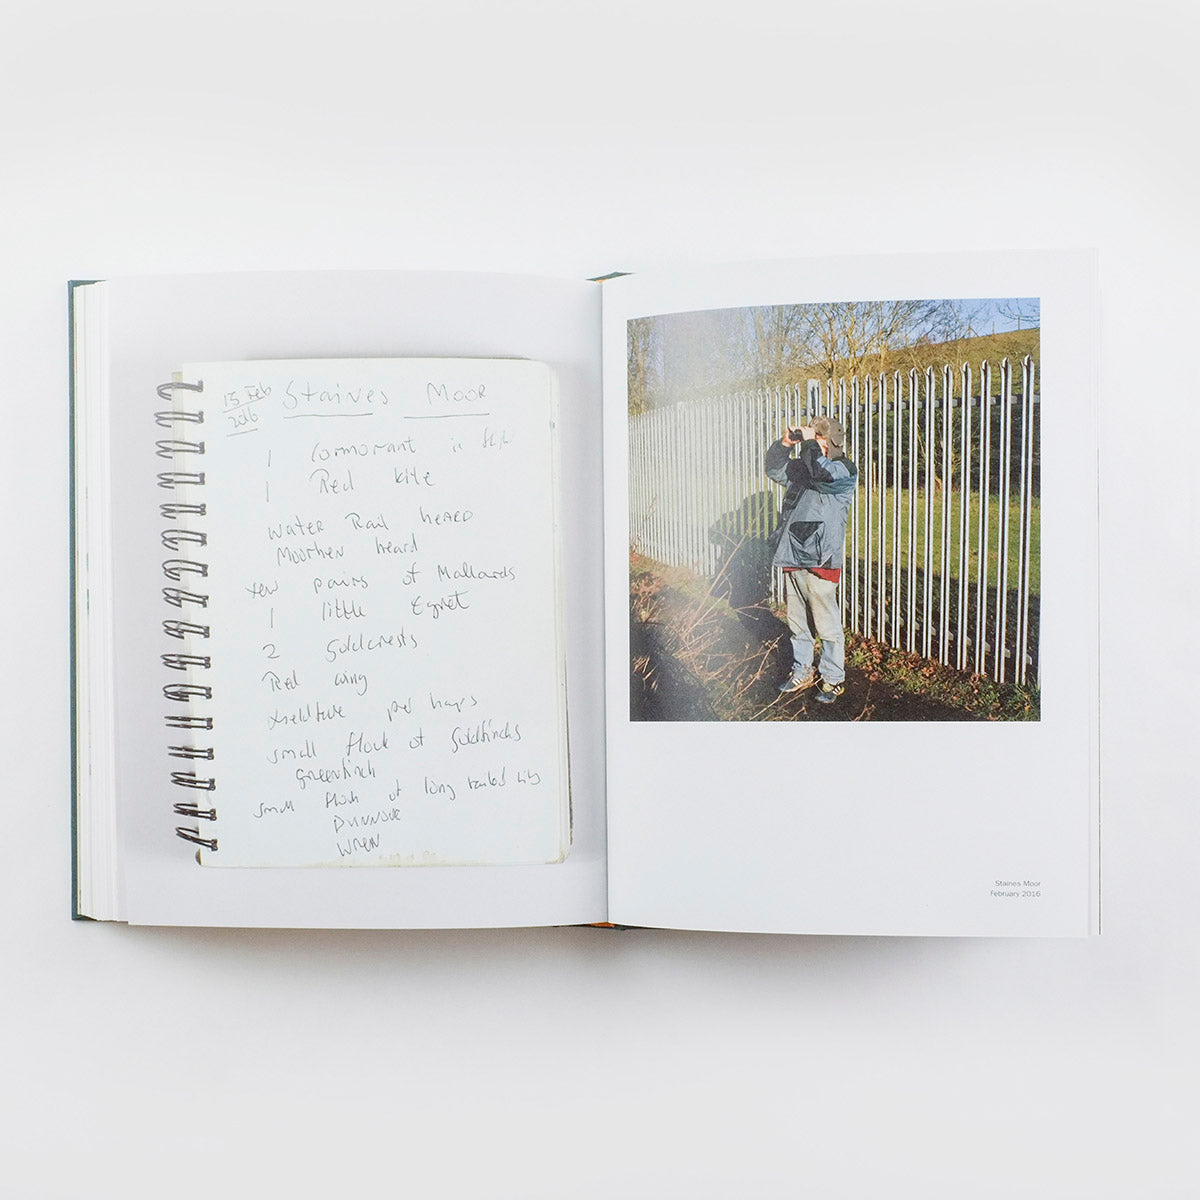 15 Feb
2016
Staines Moor
1 Cormorant in flight
1 Red kite
Water Rail heard
Moorhen heard
few pairs of Mallards
1 little Egret
2 Goldcrests
Red wing
fieldfare perhaps
small flock of Goldfinchs
greenfinch
small flock of long tailed tits
Dunnock
Wren
Staines Moor
February 2016